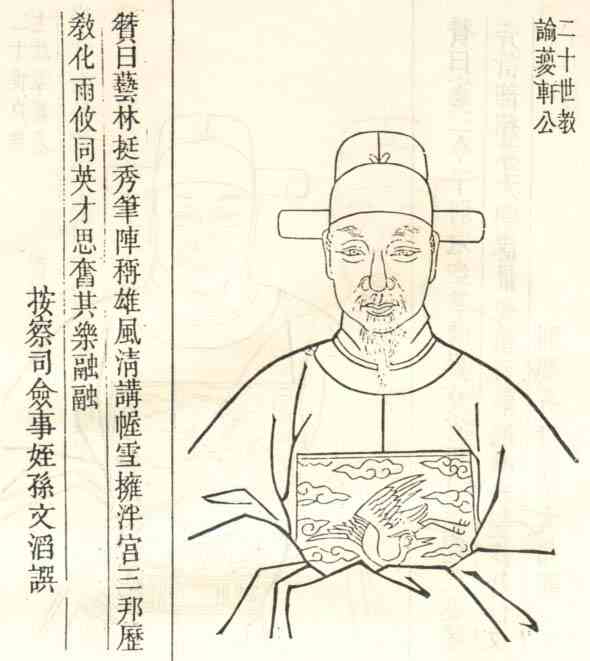 二十世教
諭蔆軒公
贊曰藝林挺秀筆陣稱雄風淸講幄雪擁泮宮三邦歷
敎化雨攸同英才思奮其樂融融
按察司僉事姪孫文滔譔